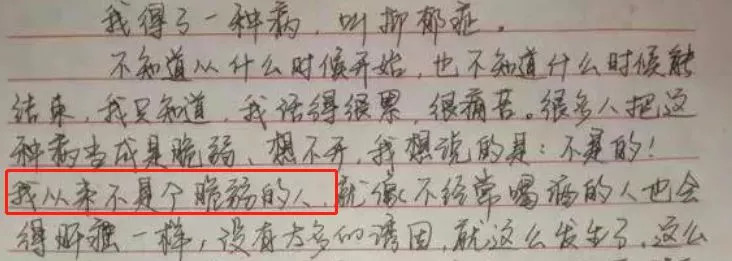 我得了一种病，叫抑郁症。
不知道从什么时候开始，也不知道什么时候能
结束，我只知道，我活得很累，很痛苦。很多人把这
种病当成是脆弱、想不开，我想说的是：不是的！
我从来不是个脆弱的人，就像不经常喝酒的人也会
得肝癌一样，没有太多的诱因，就这么发生了，这么